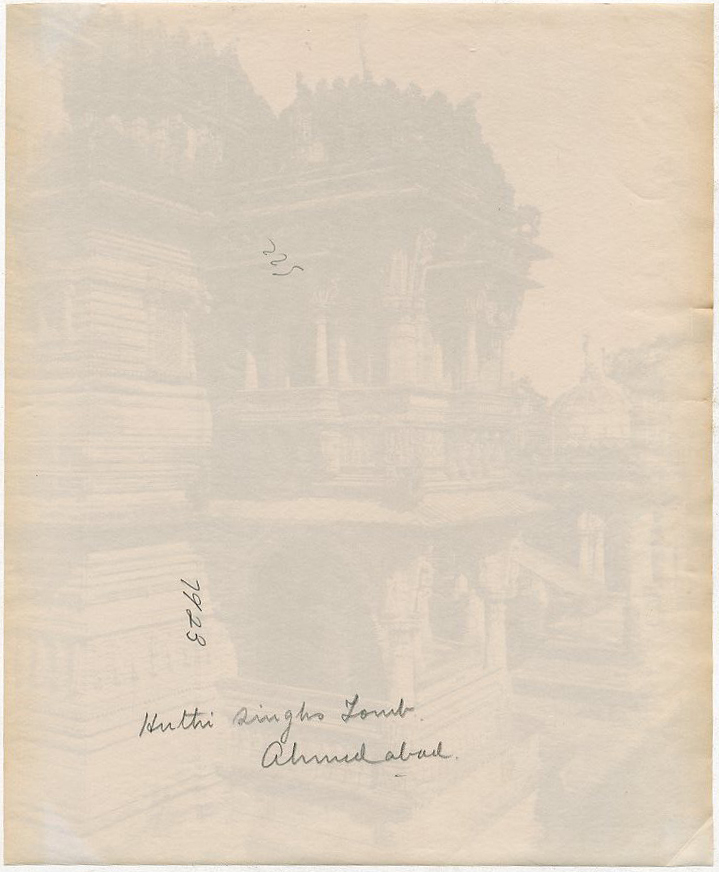 225
7923
Huthi Singhs Tomb.
Ahmedabad.